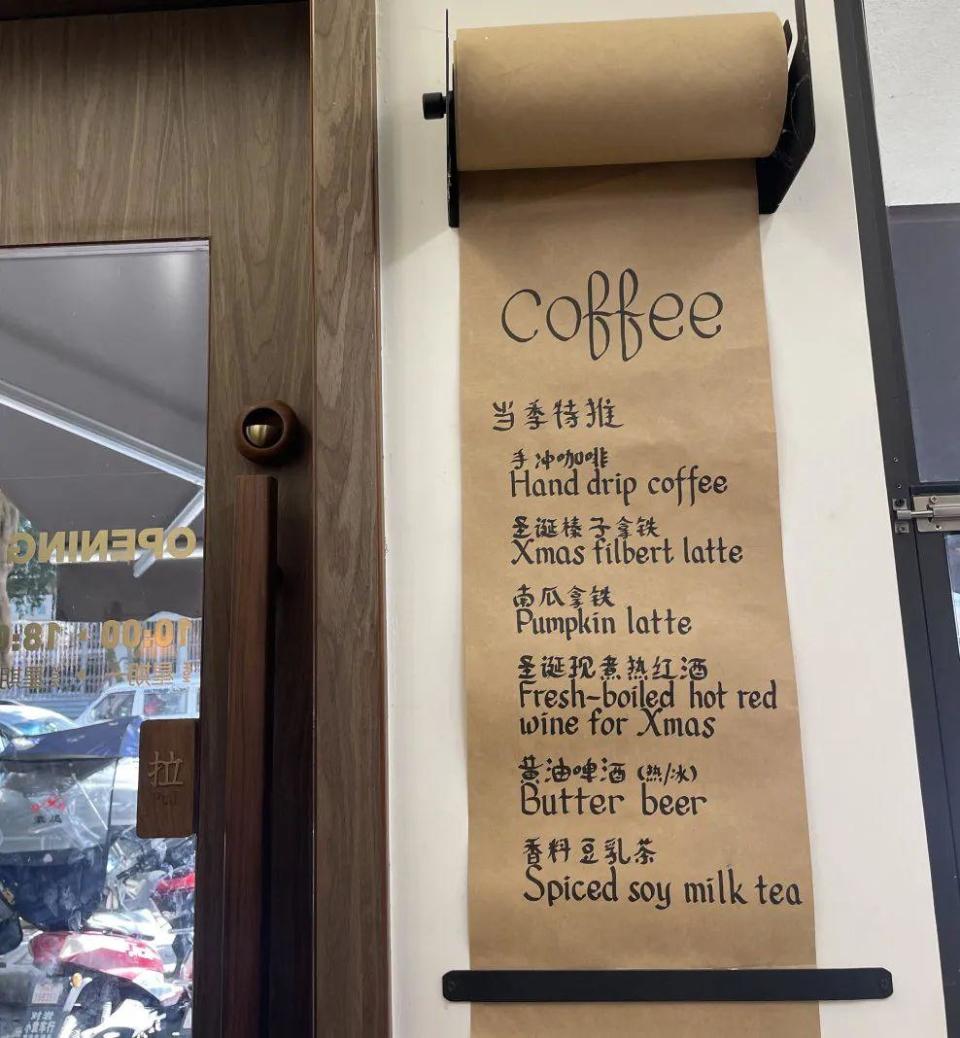 coffee
当季特推
手冲咖啡
Hand drip coffee
圣诞榛子拿铁
Xmas filbert latte
南瓜拿铁
Pumpkin latte
圣诞现煮热红酒
Fresh-boiled hot red
wine for Xmas
黄油啤酒（热/冰）
Butter beer
香料豆乳茶
Spiced soy milk tea
OPENING
10:00
拉